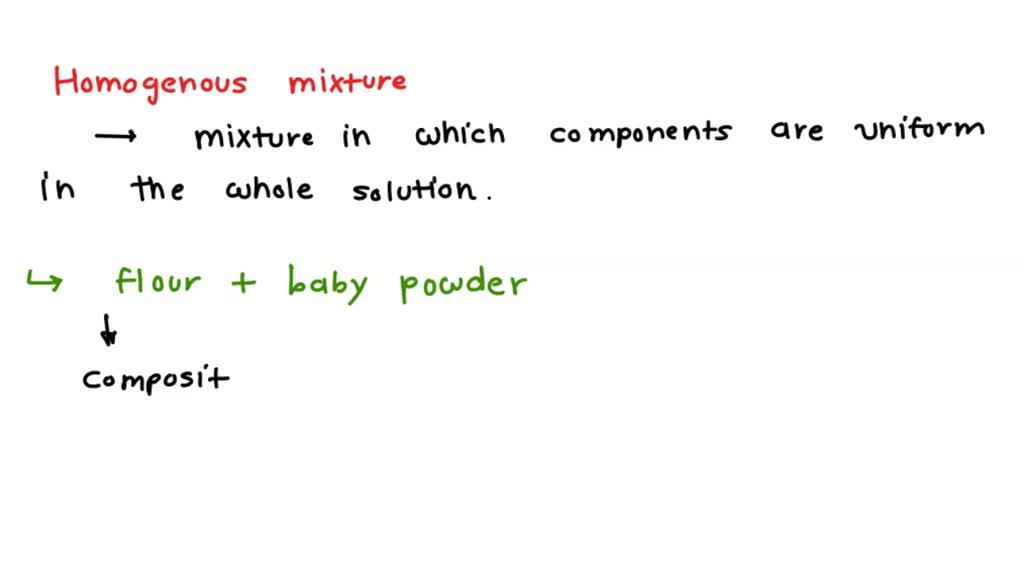 Homogenous mixture
→ mixture in which components are uniform
in the whole solution.
↳ flour + baby powder
↓
composit